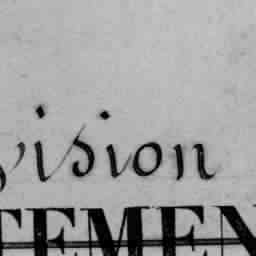 vision
TEMEN